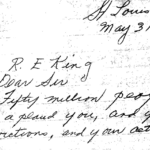 St Louis
May 31
R. E King
Dear Sir
Fifty million peop
applaud you, and y
rections, and your act